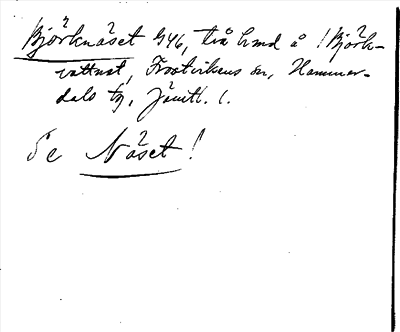 Björknäset 946, två hmd å ! Björk-
vattnet, Frostvikens sn, Hammer-
dals tg, Jämtl. l.
Se Näset!